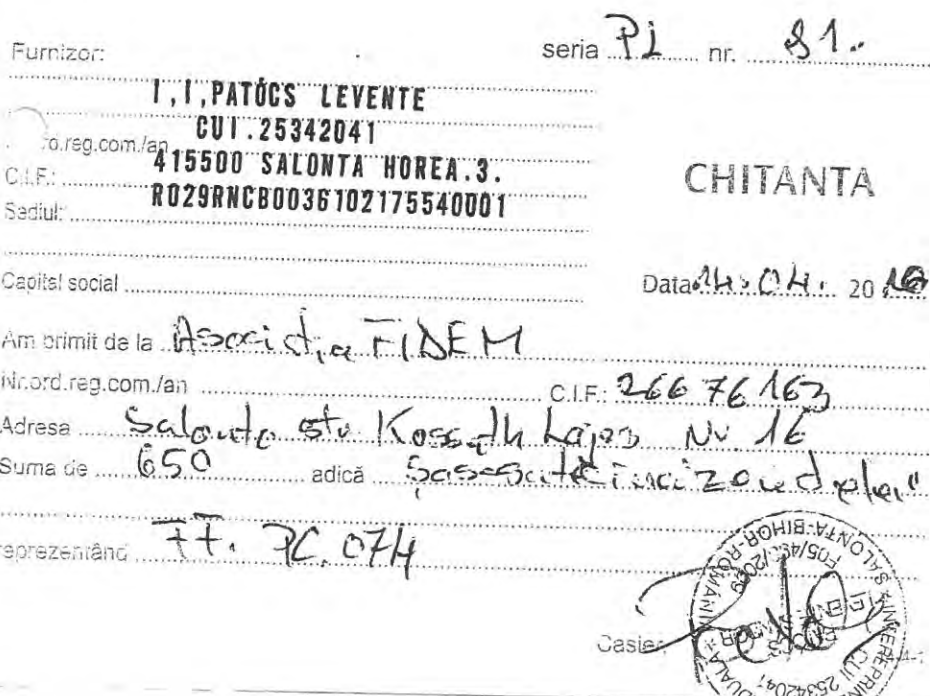 Furnizor: seria PL nr. 81.
I,I,PATÓCS LEVENTE
CUI.25342041
d.reg.com./an
415500 SALONTA HOREA.3.
C.I.F.:
RO29RNCB0036102175540001
Sediul:
CHITANTA
Capital social Data 14.04. 20 16
Am primit de la Asociatia FIDEM
Nr.ord.reg.com./an C.I.F.: 26676163
Adresa Salonta str Kossuth Lajos Nr 16
Suma de 650 adică Sasesutecincizecidelei"
reprezentând FF. PC 074
Casier
SALONTA-BIHOR-ROMÂNIA
CUI 25342041